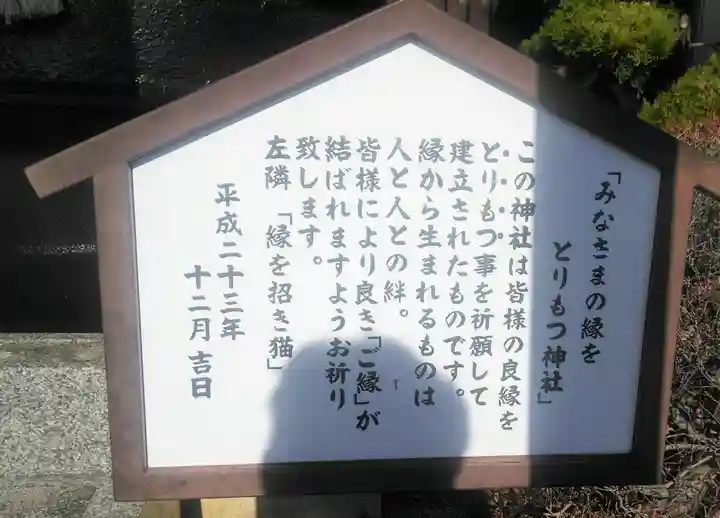 「みなさまの縁を
とりもつ神社」
この神社は皆様の良縁を
とりもつ事を祈願して
建立されたものです。
縁から生まれるものは
人と人との絆。
皆様により良き「ご縁」が
結ばれますようお祈り
致します。
左隣「縁を招き猫」
平成二十三年
十二月吉日